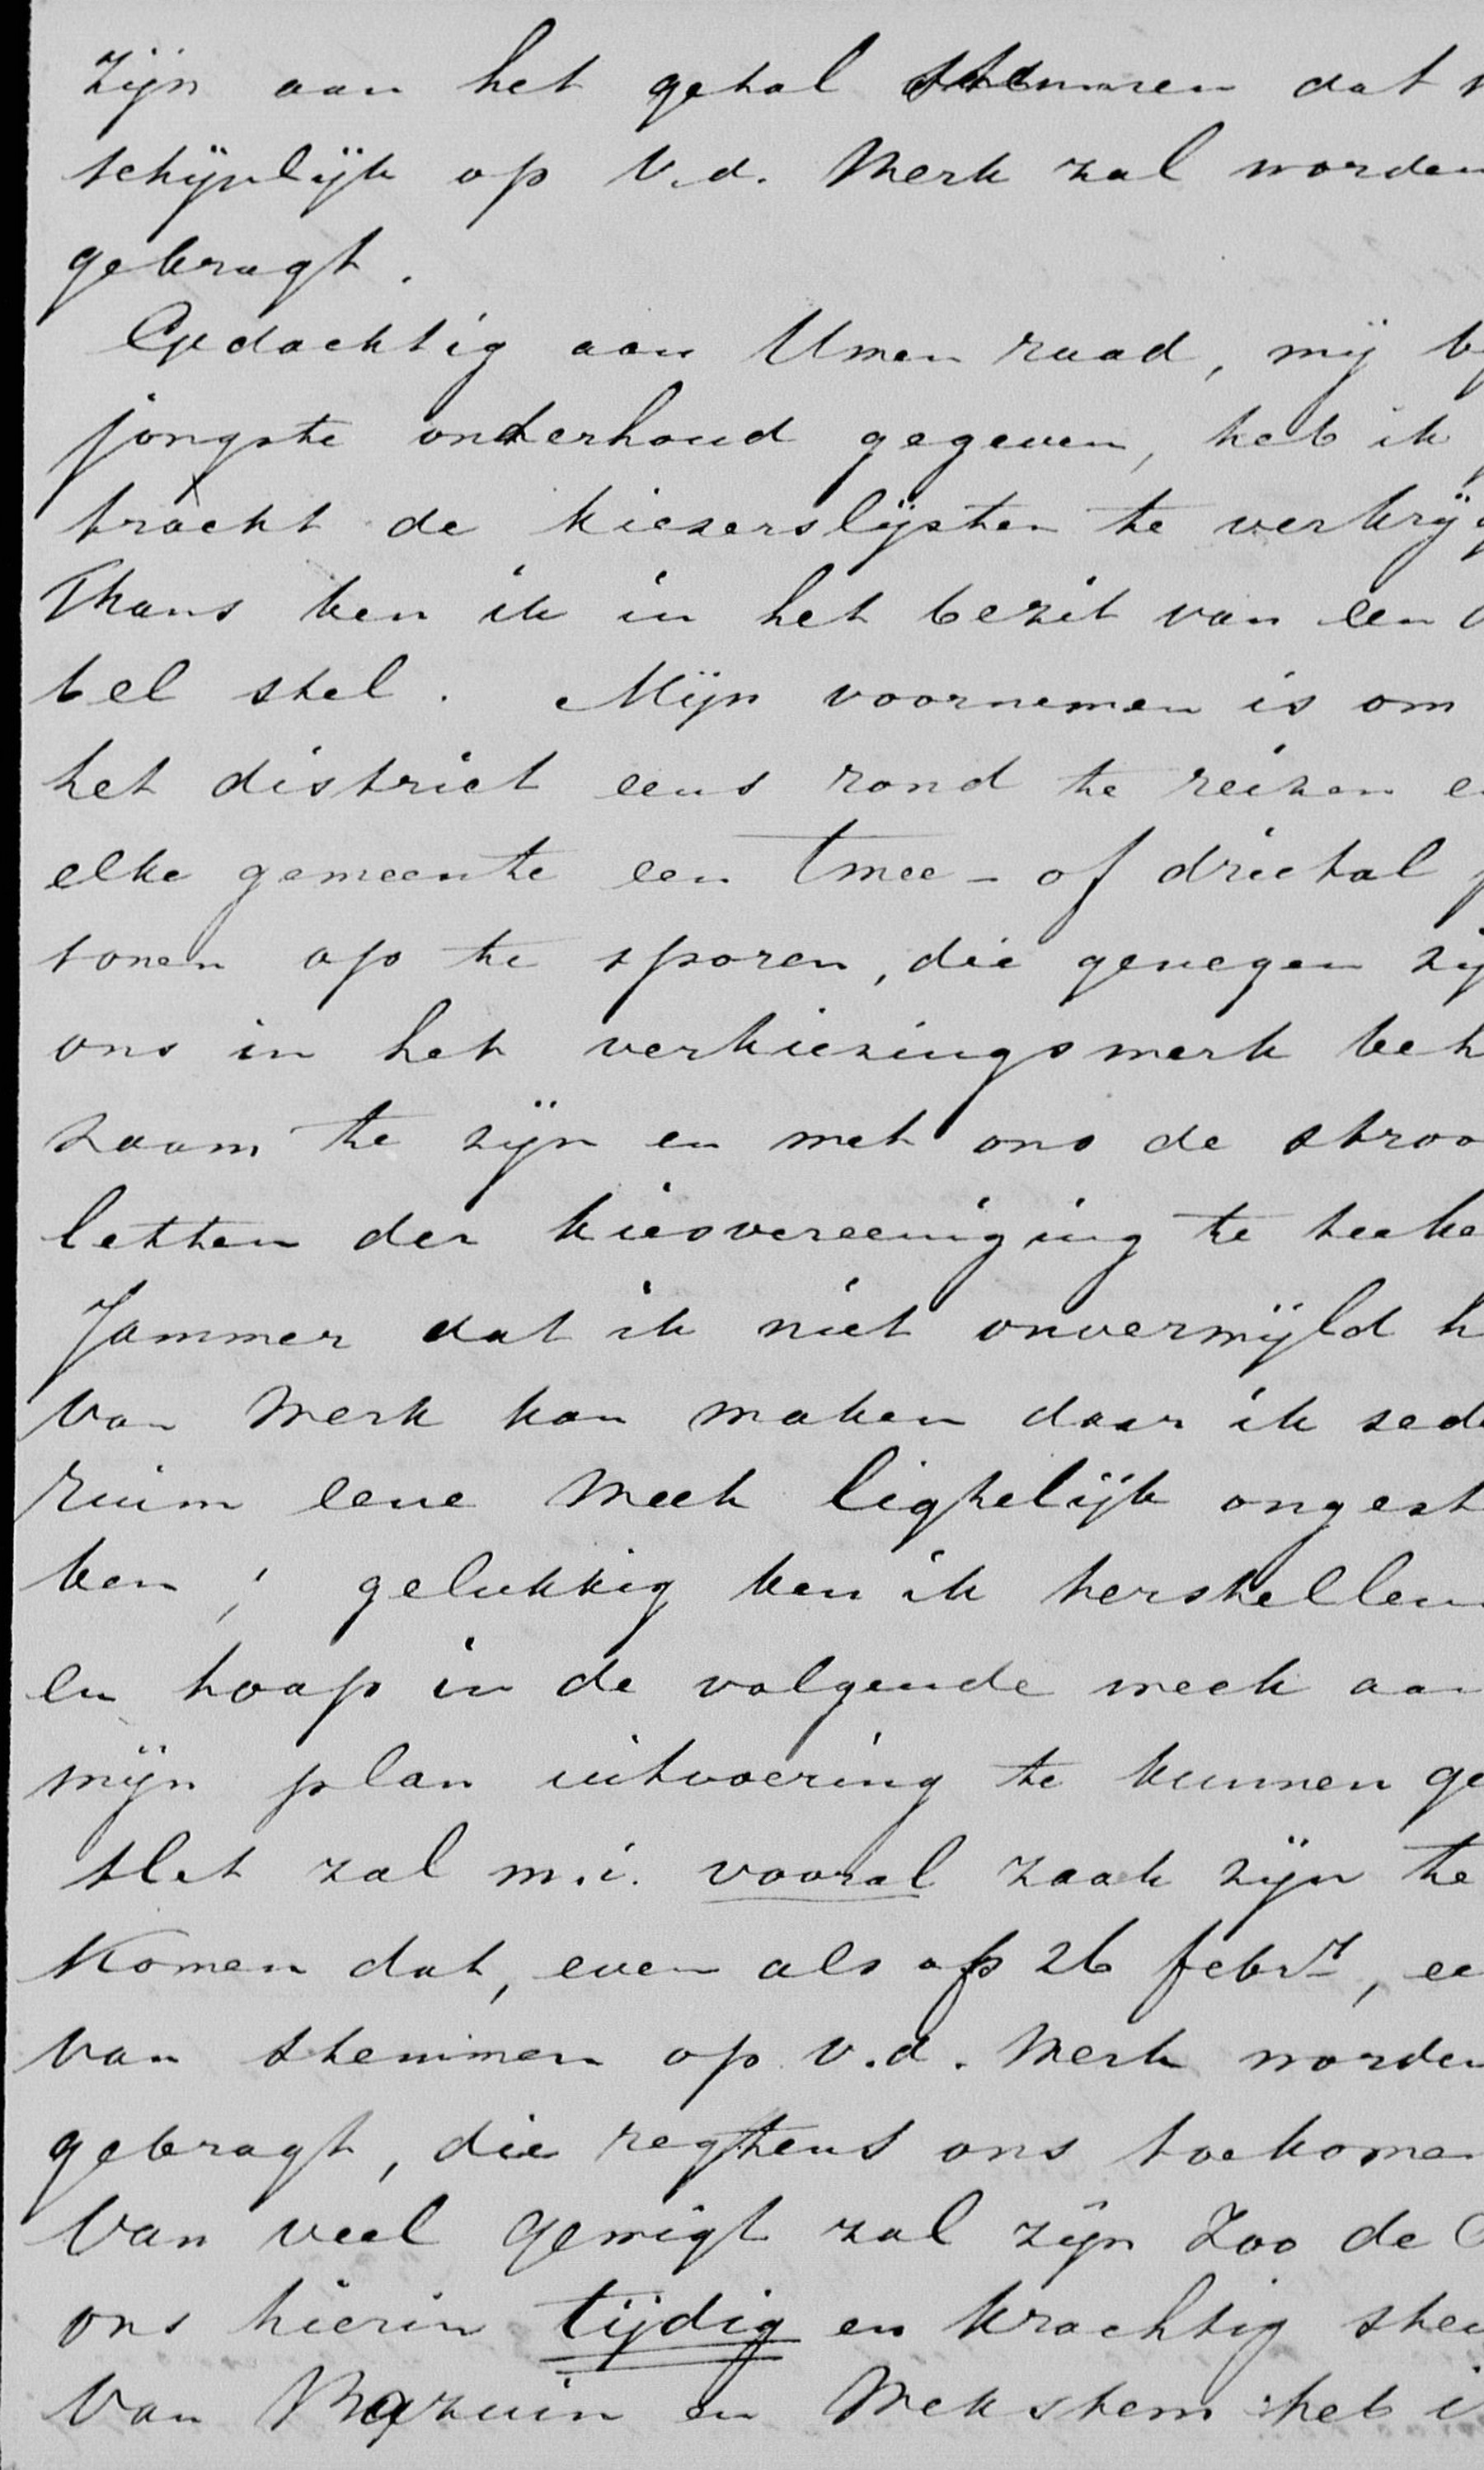 zijn aan het getal stemmen dat
schijnlijk op v.d. Werk zal worden
gebragt.
Gedachtig aan Uwen raad, mij
jongste onderhoud gegeven, heb ik
tracht de kiezerslijsten te verkrijg
Thans ben ik in het bezit van een
bel stel. Mijn voornemen is om
het district eens rond te reizen
elke gemeente een twee- of drietal
sonen op te sporen, die genegen zij
ons in het verkiezingswerk beh
zaam te zijn en met ons de stroo
letten der kiesvereeniging te teeke
Jammer dat ik niet onvermijld
van Werk kan maken daar ik sed
ruim eene week ligtelijk ongest
ben; gelukkig ben ik herstellen
en hoop in de volgende week aan
mijn plan uitvoering te kunnen ge
Het zal m.i. vooral zaak zijn te
komen dat, even als op 26 febr., ee
van stemmen op v.d. Werk worden
gebragt, die regtens ons toekomen
Van veel gewigt zal zijn zoo de
ons hierin tijdig en krachtig steu
Van Bazuin en Wekstem heb i